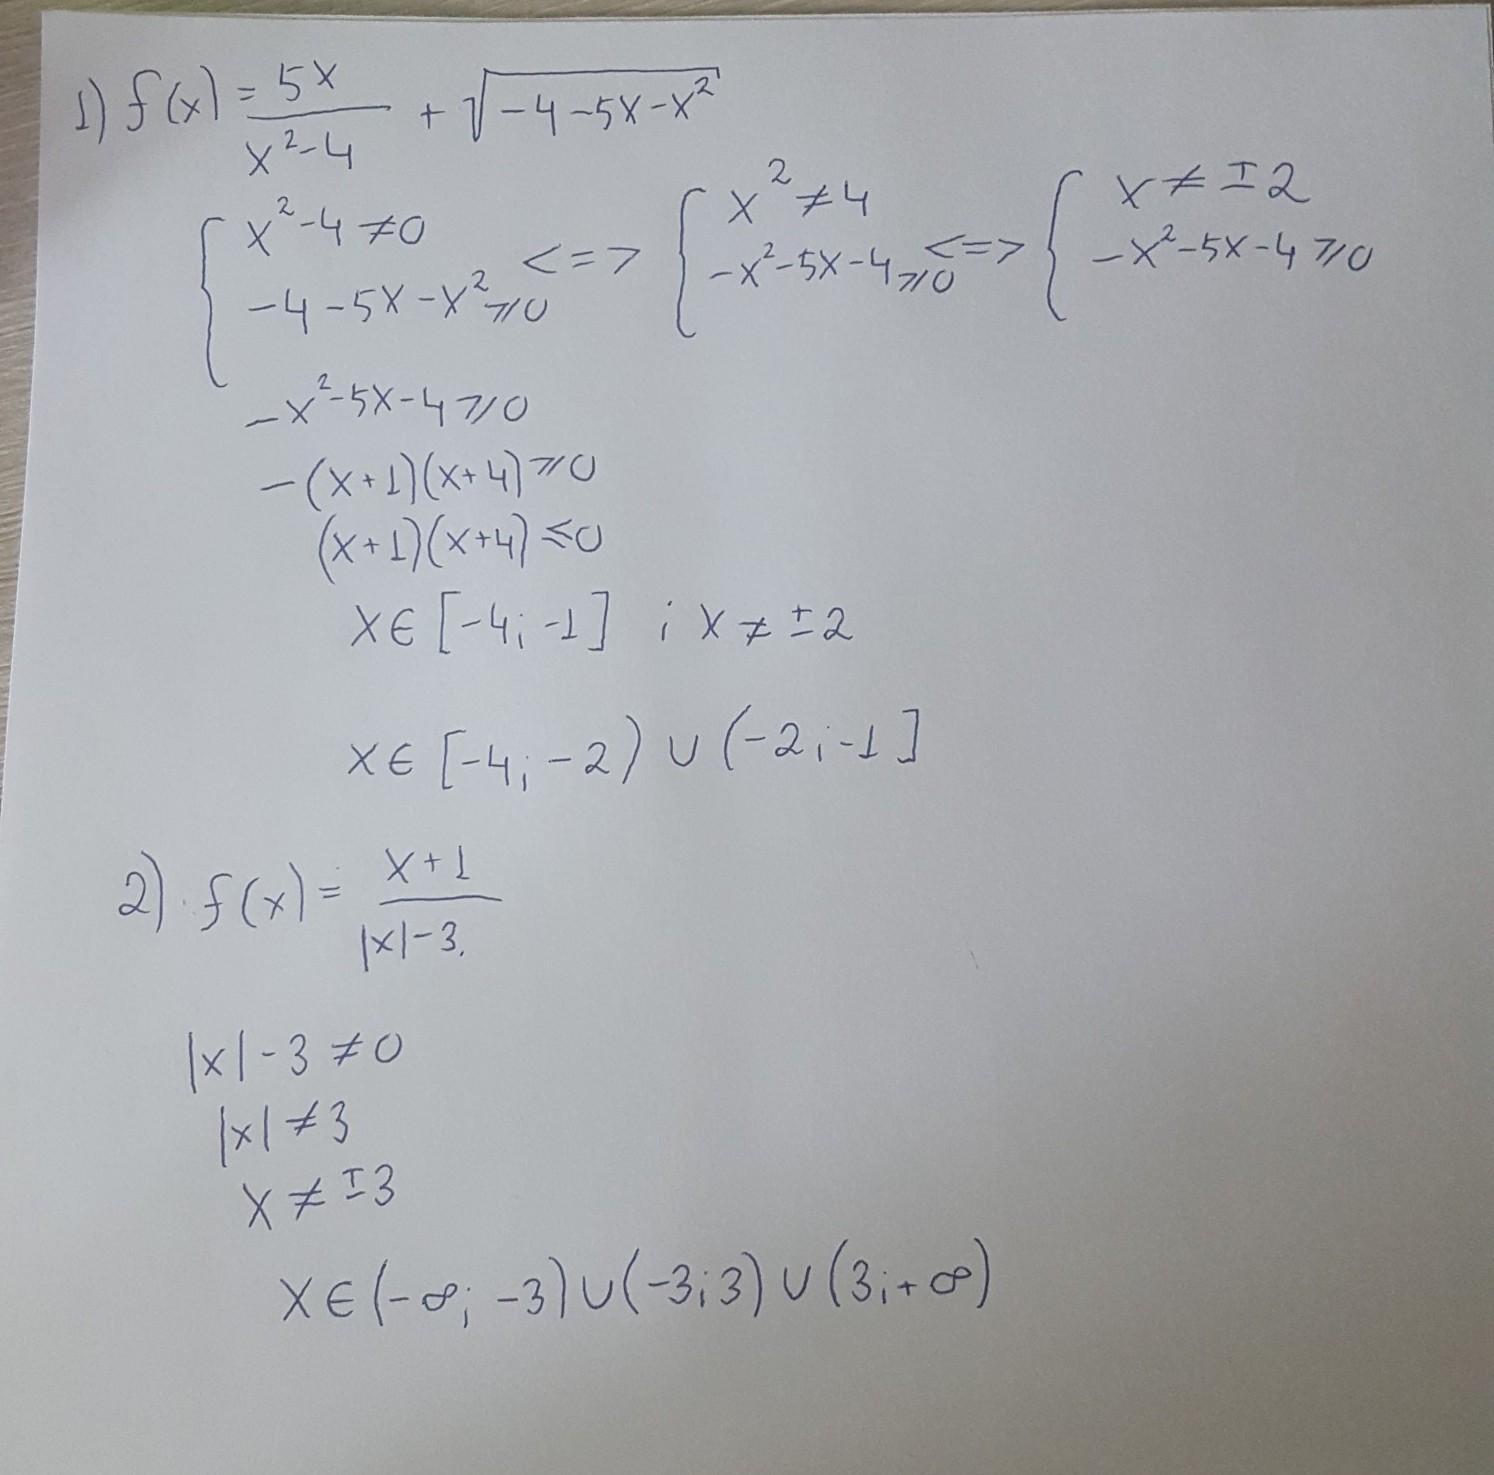 1) f(x) = 5x / (x² - 4) + √(-4 - 5x - x²)
{ x² - 4 ≠ 0 ; -4 - 5x - x² ≥ 0 <=> { x² ≠ 4 ; -x² - 5x - 4 ≥ 0 <=> { x ≠ ±2 ; -x² - 5x - 4 ≥ 0
-x² - 5x - 4 ≥ 0
-(x+1)(x+4) ≥ 0
(x+1)(x+4) ≤ 0
x ∈ [-4; -1] ; x ≠ ±2
x ∈ [-4; -2) ∪ (-2; -1]
2) f(x) = (x+1) / (|x| - 3)
|x| - 3 ≠ 0
|x| ≠ 3
x ≠ ±3
x ∈ (-∞; -3) ∪ (-3; 3) ∪ (3; +∞)